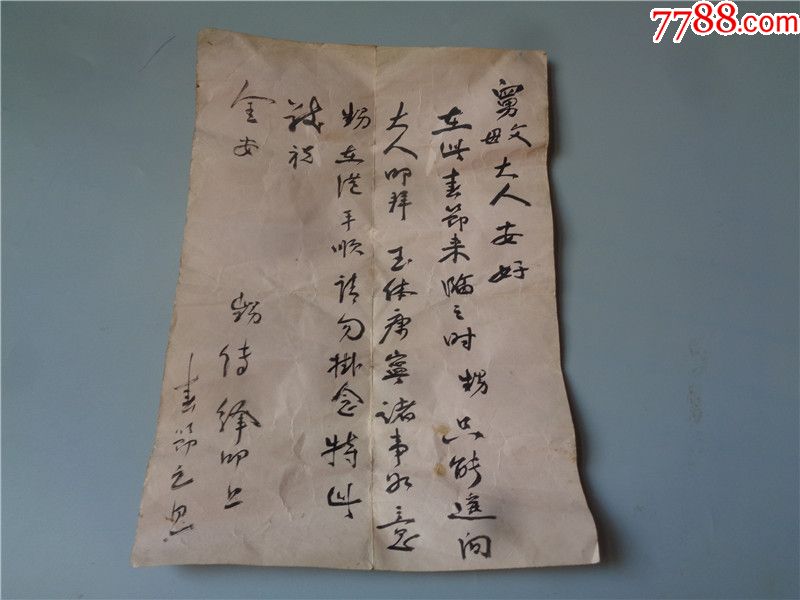 舅父母大人安好
在此春節来臨之时 甥只能遥向
大人叩拜 玉体康寧諸事如意
甥在港平順請勿掛念特此
祝
金安
甥叩上
春節之
7788.com